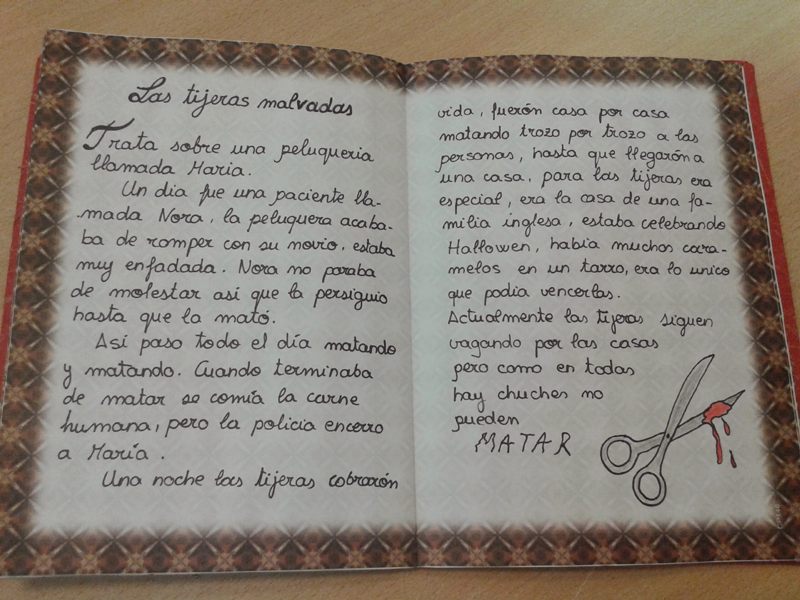 Las tijeras malvadas
Trata sobre una peluqueria
llamada Maria.
Un dia fue una paciente lla-
mada Nora, la peluquera acaba-
ba de romper con su novio, estaba
muy enfadada. Nora no paraba
de molestar asi que la persiguio
hasta que la mató.
Asi paso todo el día matando
y matando. Cuando terminaba
de matar se comía la carne
humana, pero la policia encerro
a María.
Una noche las tijeras cobrarón
vida, fuerón casa por casa
matando trozo por trozo a las
personas, hasta que llegarón a
una casa, para las tijeras era
especial, era la casa de una fa-
milia inglesa, estaba celebrando
Hallowen, había muchos cara-
melos en un tarro, era lo unico
que podia vencerlas.
Actualmente las tijeras siguen
vagando por las casas
pero como en todas
hay chuches no
pueden
MATAR